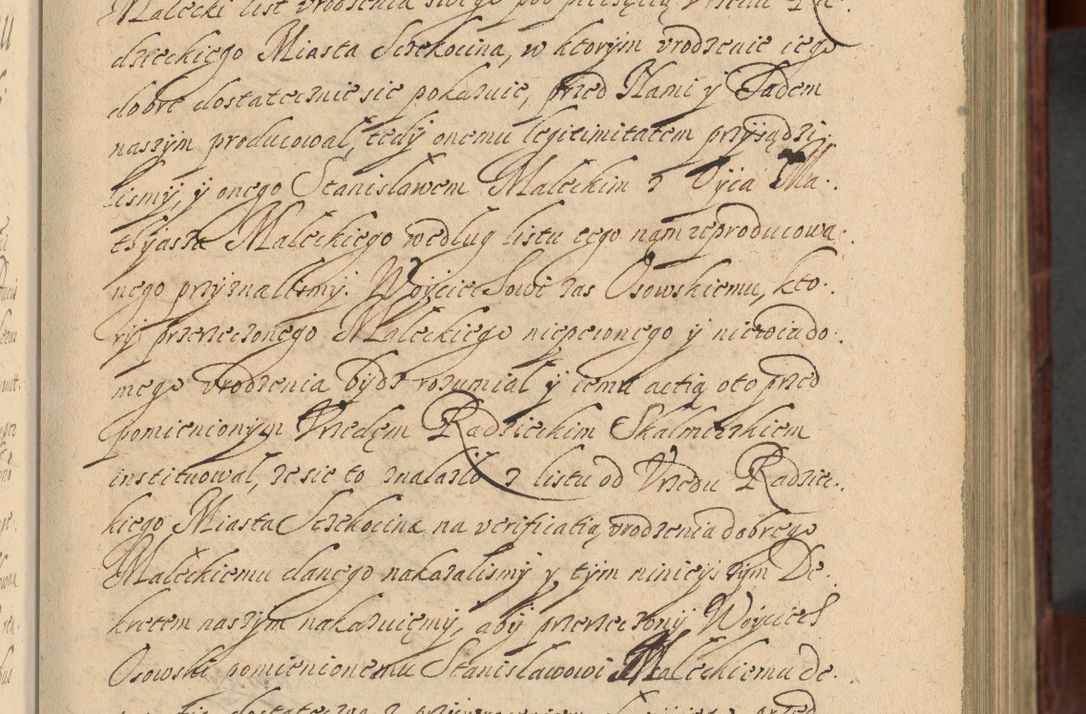 Malecki list vrodzenia swego pod pieczęcią Vrzedu Ra-
dzieckiego Miasta Sczekocina, w ktorÿm vrodzenie iego
dobre dostatecznie sie pokazuie, przed Nami ÿ Sądem
naszÿm producował, tedÿ onemu legitimitatem przÿsądzi-
lismÿ, ÿ onego Stanisławem Maleckim z Oÿca Ma-
thÿasza Maleckiego według listu iego nam reproducowa-
nego przÿznalismÿ. Woÿciechowi zas Osowskiemu, kto-
rÿ przerzeczonego Maleckiego niepewnego ÿ niewiado-
mego vrodzenia bÿdz rozumiał ÿ iemu actią oto przed
pomienionÿm Vrzedem Radzieckim Skalmerskiem
instituował, ze sie to znalazło z listu od Vrzedu Radzie-
kiego Miasta Sczekocina na verificatią vrodzenia dobrego
Maleckiemu danego nakazalismÿ ÿ tÿm ninieÿszÿm De-
kretem naszÿm nakazuięmÿ, abÿ przerzeczonÿ Woÿciech
Osowski pomienionemu Stanisławowi Maleckiemu de-